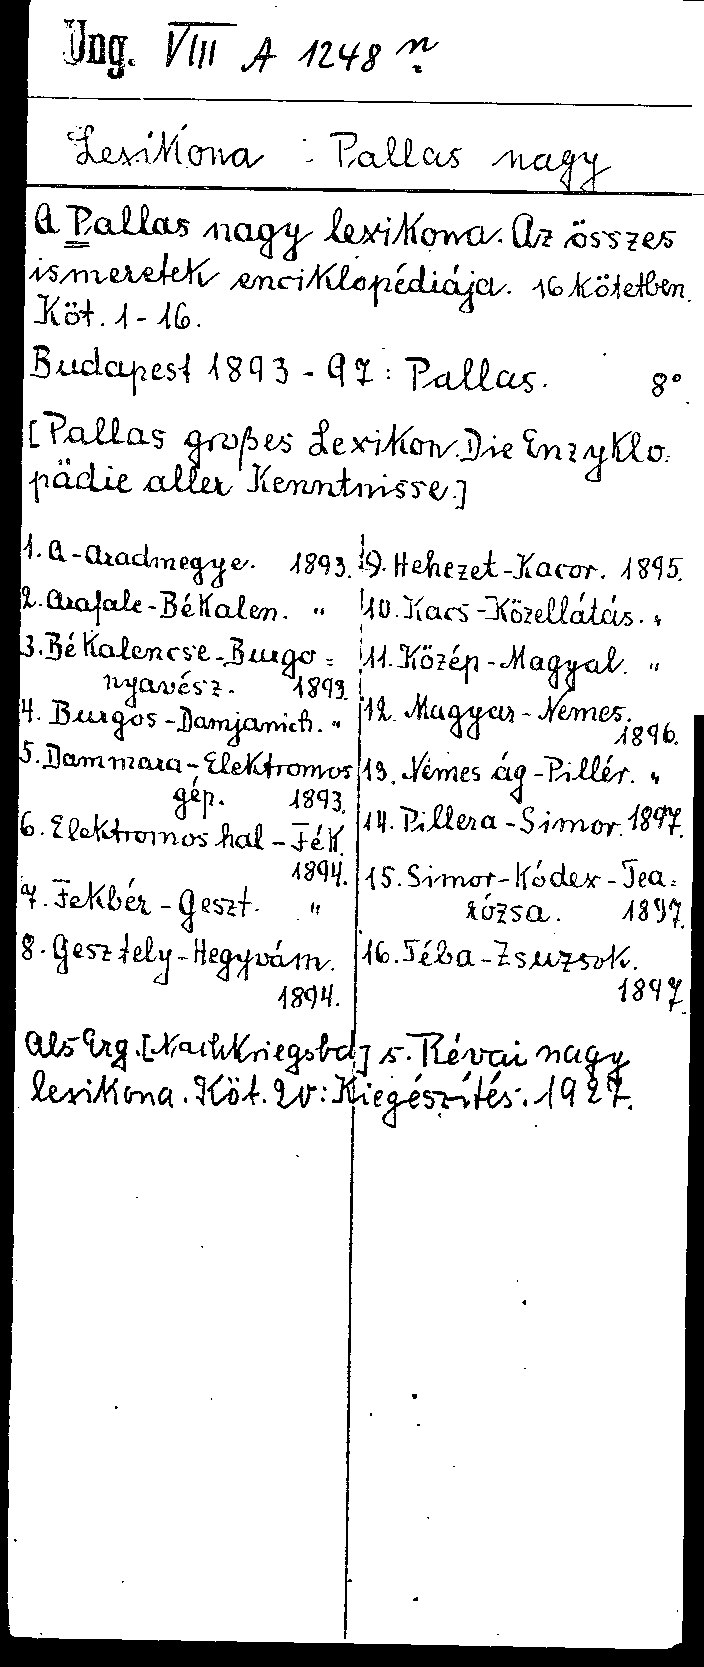 Ung. VIII A 1248 n
Lexikona : Pallas nagy
A Pallas nagy lexikona. Az összes
ismeretek enciklopédiája. 16 Kötetben.
Köt. 1-16.
Budapest 1893-97: Pallas. 8°
[Pallas großes Lexikon. Die Enzyklo=
pädie aller Kenntnisse.]
1. A-Aradmegye. 1893.
2. Arafale-Békalen. "
3. Békalencse-Burgo=
nyavész. 1893.
4. Burgos-Damjanich. "
5. Dammara-Elektromos
gép. 1893.
6. Elektromos hal-Fék.
1894.
7. Fekbér-Geszt. "
8. Gesztely-Hegyvám.
1894.
9. Hehezet-Kacor. 1895.
10. Kacs-Közellátás. "
11. Közép-Magyal. "
12. Magyar-Nemes.
1896.
13. Nemes ág-Pillér. "
14. Pillera-Simor. 1897.
15. Simor-Kódex-Tea=
rózsa. 1897.
16. Téba-Zsuzsok.
1897.
Als Erg. [Nachkriegsbd] s. Révai nagy
lexikona. Köt. 20: Kiegészítés. 1927.